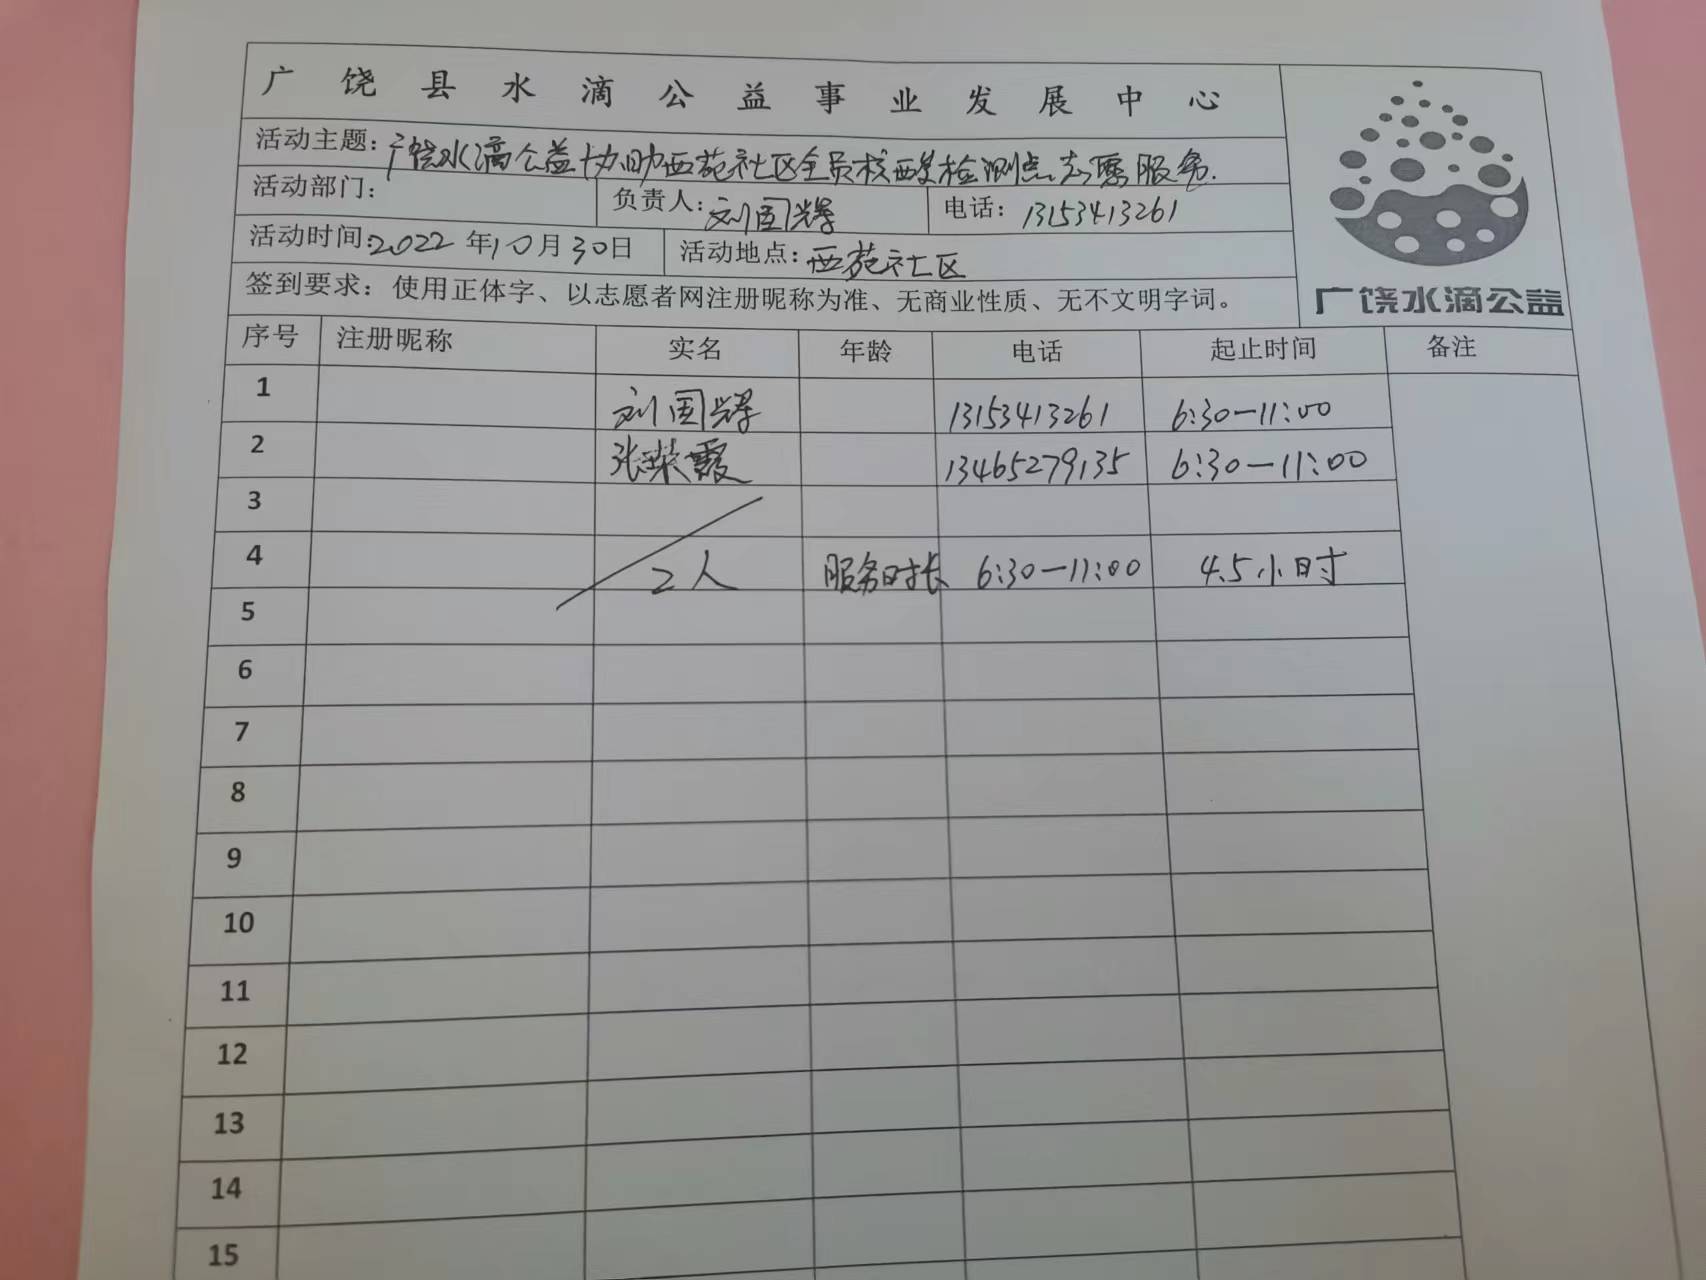 广饶县水滴公益事业发展中心
活动主题：广饶水滴公益协助西苑社区全员核酸检测点志愿服务.
活动部门： 负责人：刘国辉 电话：13153413261
活动时间：2022年10月30日 活动地点：西苑社区
签到要求：使用正体字、以志愿者网注册昵称为准、无商业性质、无不文明字词。
广饶水滴公益
序号 注册昵称 实名 年龄 电话 起止时间 备注
1 刘国辉 13153413261 6:30—11:00
2 张荣霞 13465279135 6:30—11:00
3
4 2人 服务时长 6:30—11:00 4.5小时
5
6
7
8
9
10
11
12
13
14
15